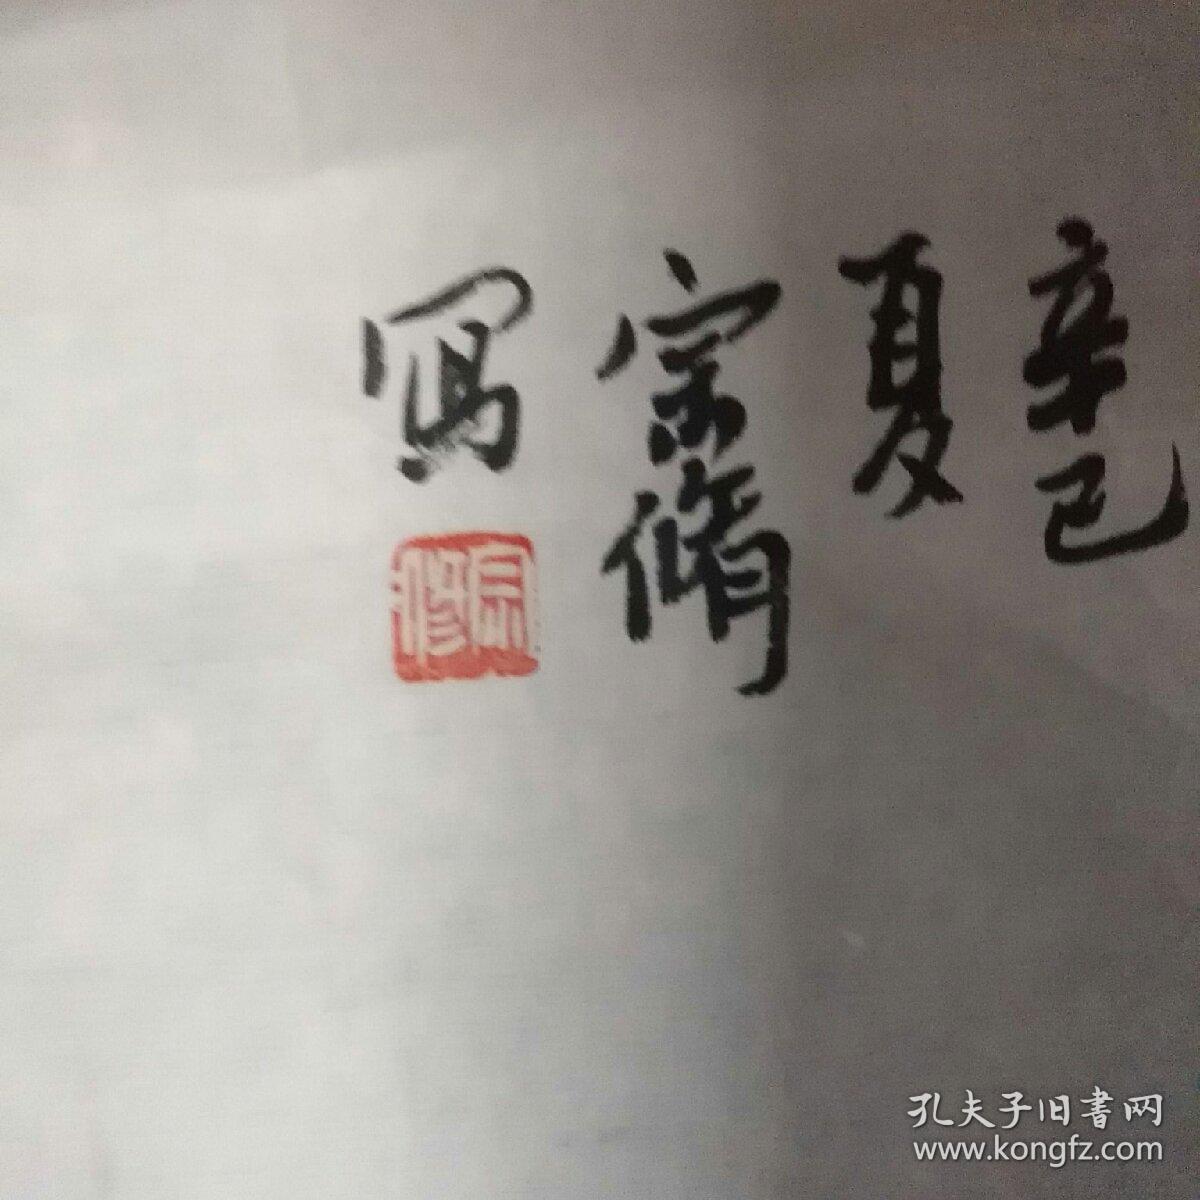 辛巳
夏
宗脩
寫
宗修
孔夫子旧書网
www.kongfz.com